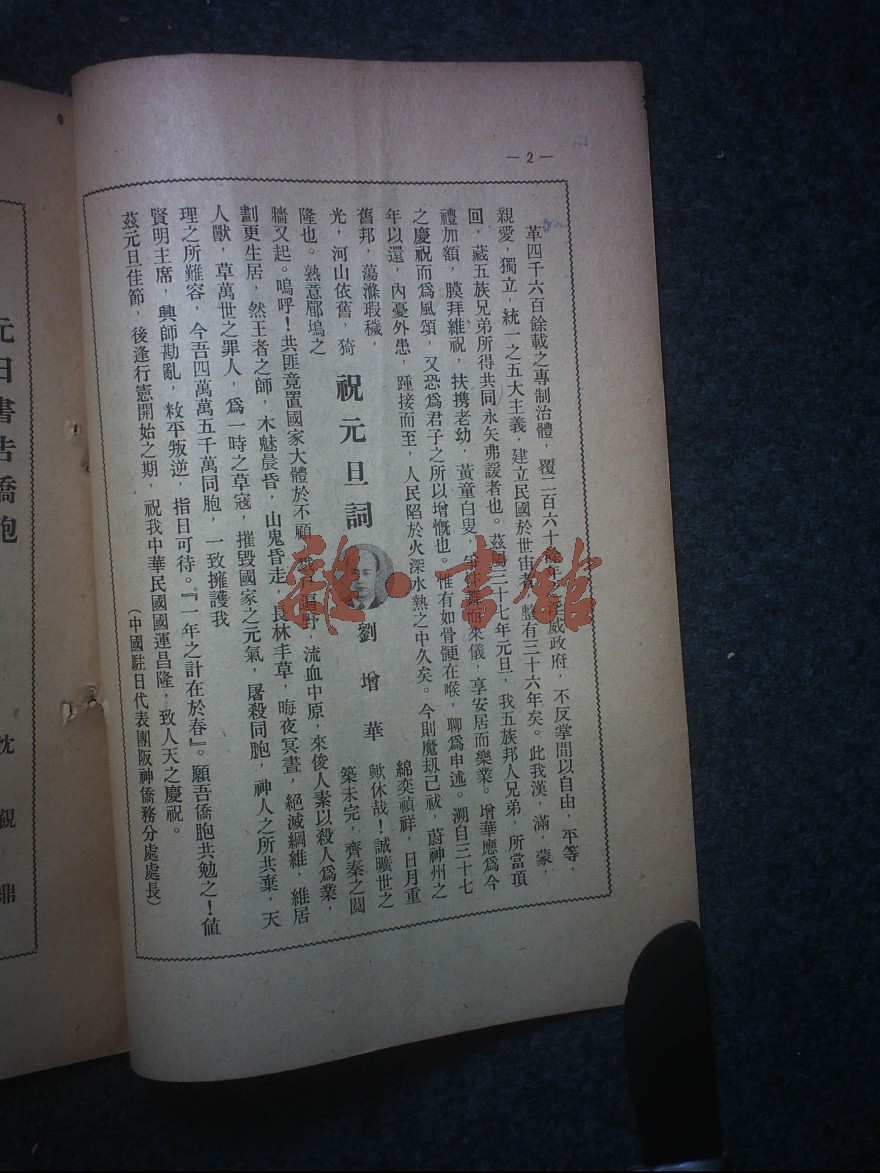 — 2 —
革四千六百餘載之專制治體，覆二百六十餘年之淫威政府，不反掌間以自由，平等，
親愛，獨立，統一之五大主義，建立民國於世宙者，整有三十六年矣。此我漢，滿，蒙，
回，藏五族兄弟所得共同永矢弗諼者也。茲獨三十七年元旦，我五族邦人兄弟，所當項
禮加額，膜拜維祝，扶携老幼，黃童白叟，而來儀，享安居而樂業。增華應爲今
之慶祝而爲風頌，又恐爲君子之所以增慨也。惟有如骨骾在喉，聊爲申述。溯自三十七
年以還，內憂外患，踵接而至，人民陷於火深水熱之中久矣。今則魔刼已祓，蔚神州之
舊邦，蕩滌瑕穢，
綿奕禎祥，日月重
光，河山依舊，猗
歟休哉！誠曠世之
隆也。熟意郿塢之
築未完，齊秦之鬩
祝元旦詞
劉增華
牆又起。嗚呼！共匪竟置國家大體於不顧，野，流血中原，來俊人素以殺人爲業，
劃更生居，然王者之師，木魅晨昏，山鬼昏走，長林丰草，晦夜冥晝，絕滅綱維，維居
人獸，草萬世之罪人，爲一時之草寇，摧毀國家之元氣，屠殺同胞，神人之所共棄，天
理之所難容，今吾四萬萬五千萬同胞，一致擁護我
賢明主席，興師勘亂，敉平叛逆，指日可待。『一年之計在於春』。願吾僑胞共勉之！値
茲元旦佳節，後逢行憲開始之期，祝我中華民國國運昌隆，致人天之慶祝。
（中國駐日代表團阪神僑務分處處長）
元旦書告僑胞
沈覲鼎
雜·書館